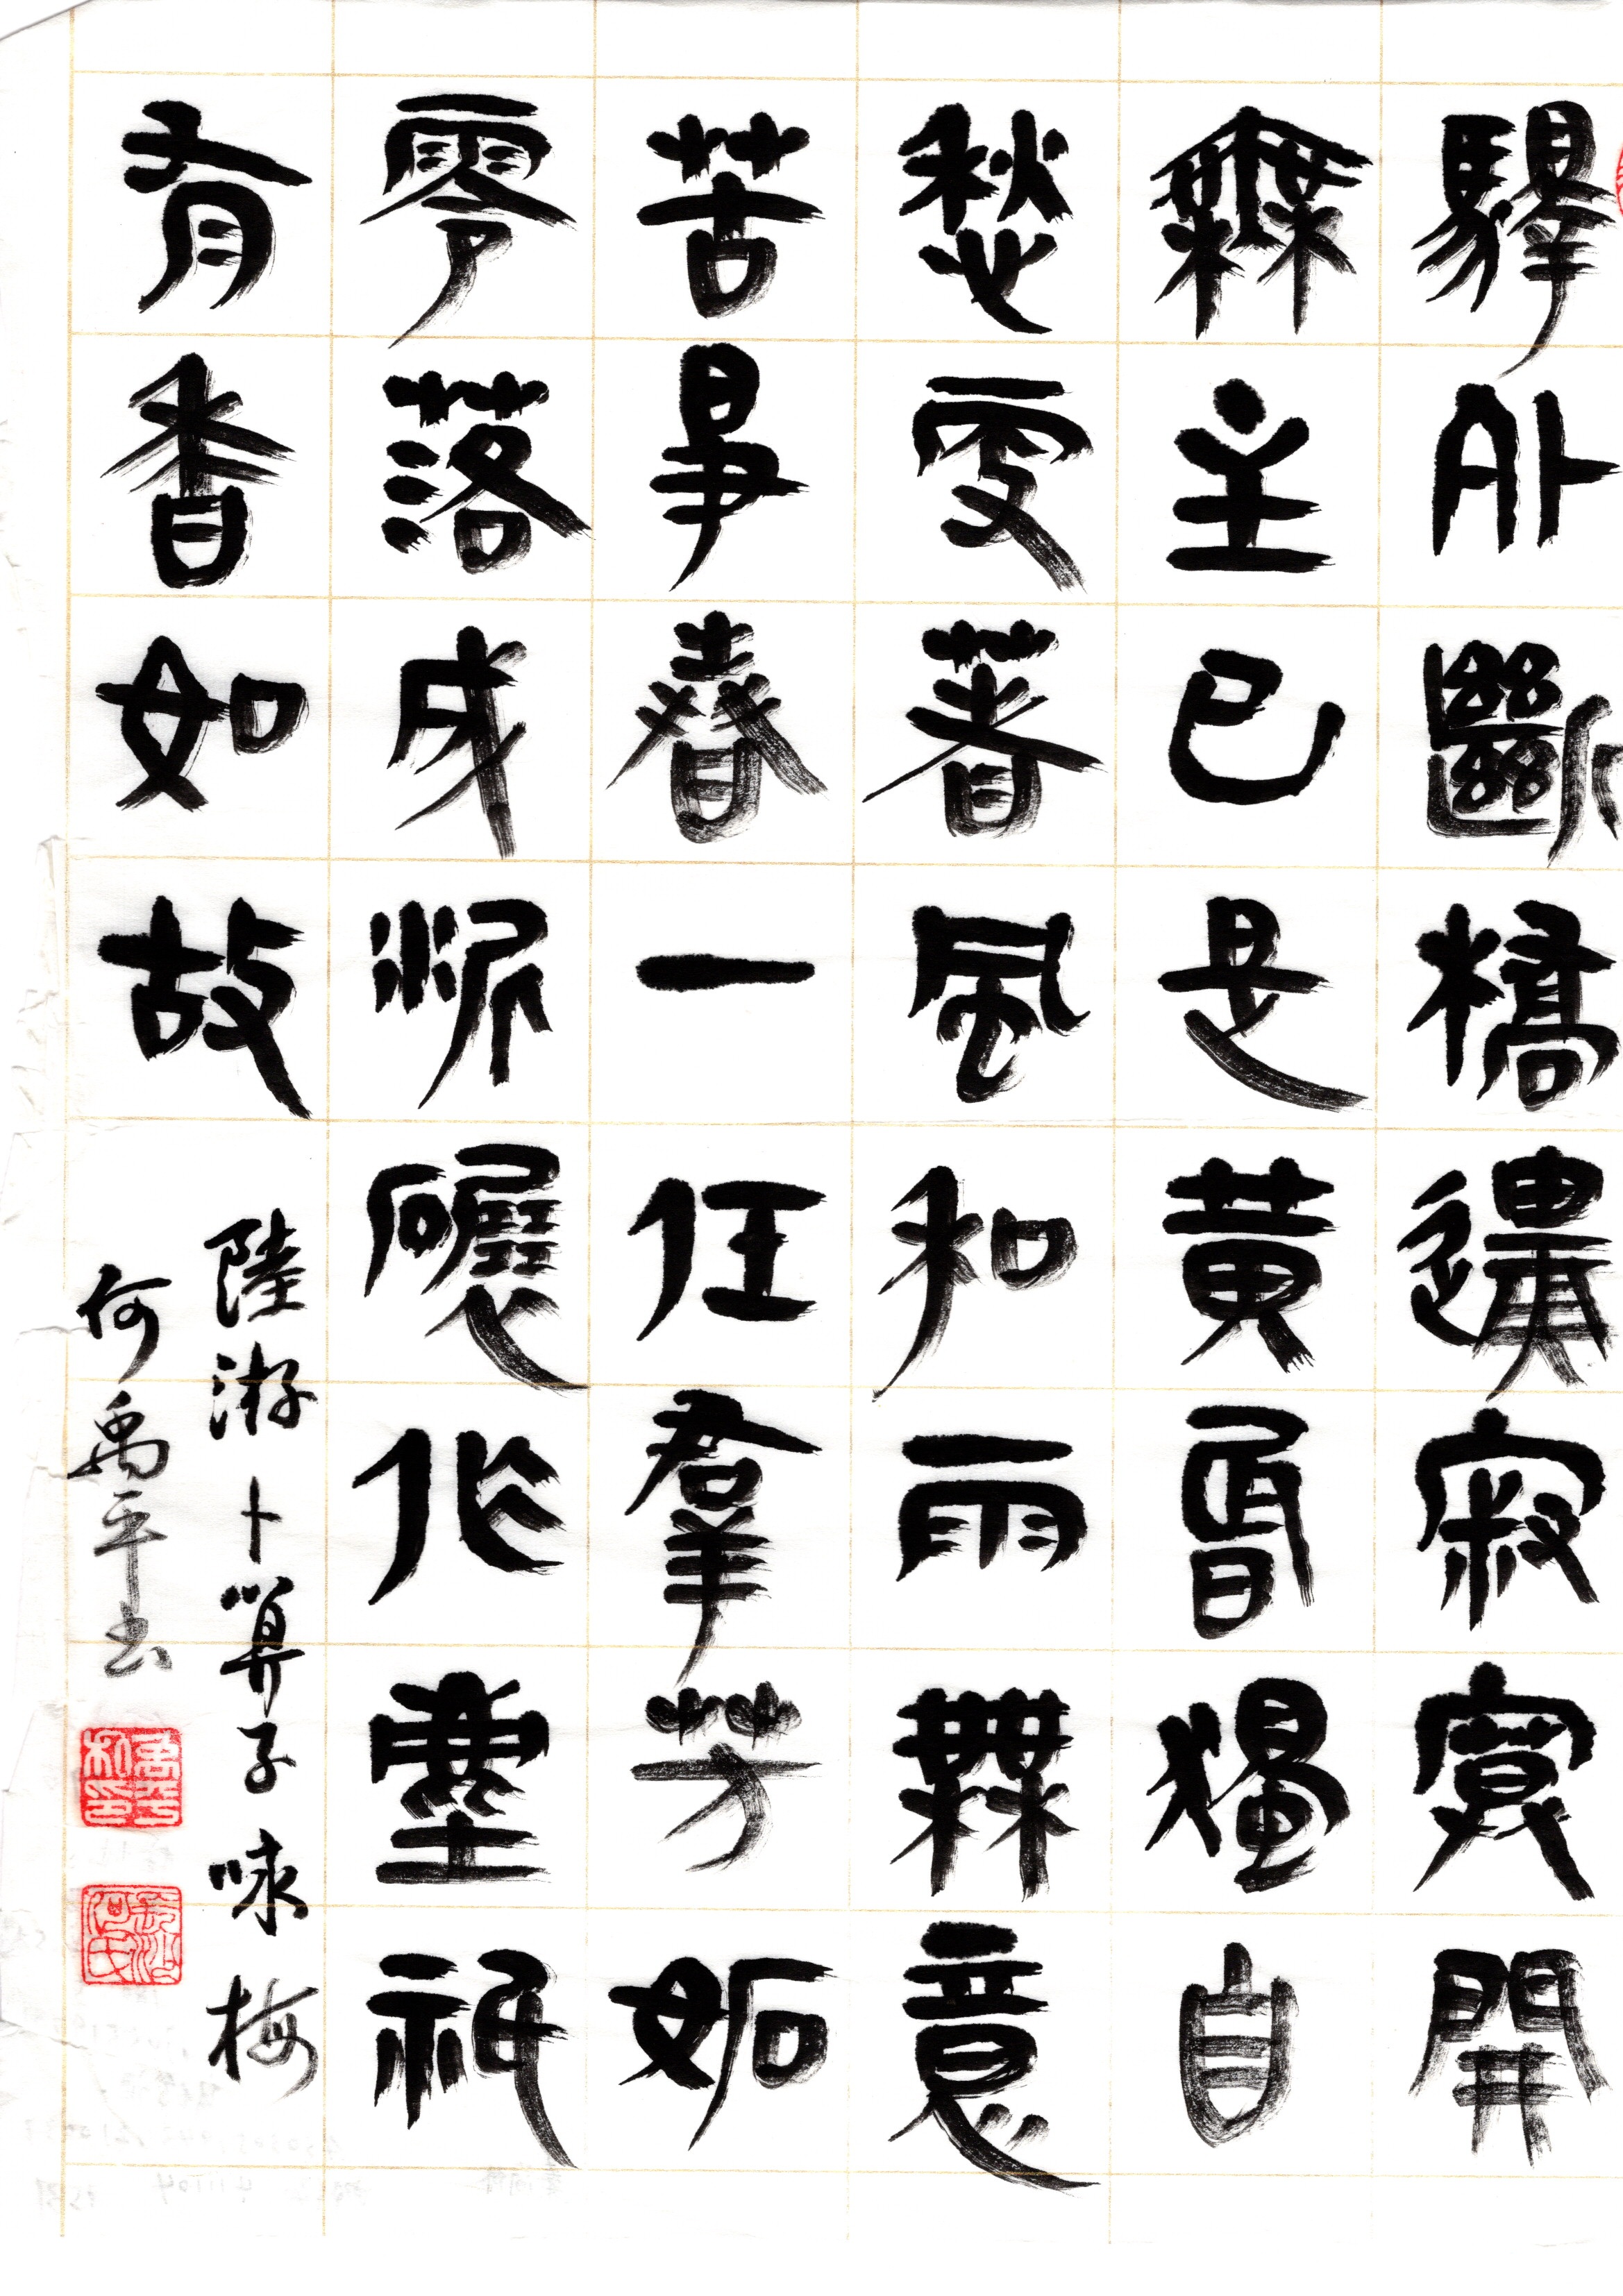 驛外斷橋邊寂寞開
無主已是黃昏獨自
愁更著風和雨無意
苦爭春一任羣芳妬
零落成泥碾作塵祇
有香如故
陸游卜算子咏梅
何禹平書
禹平私印
長沙何氏